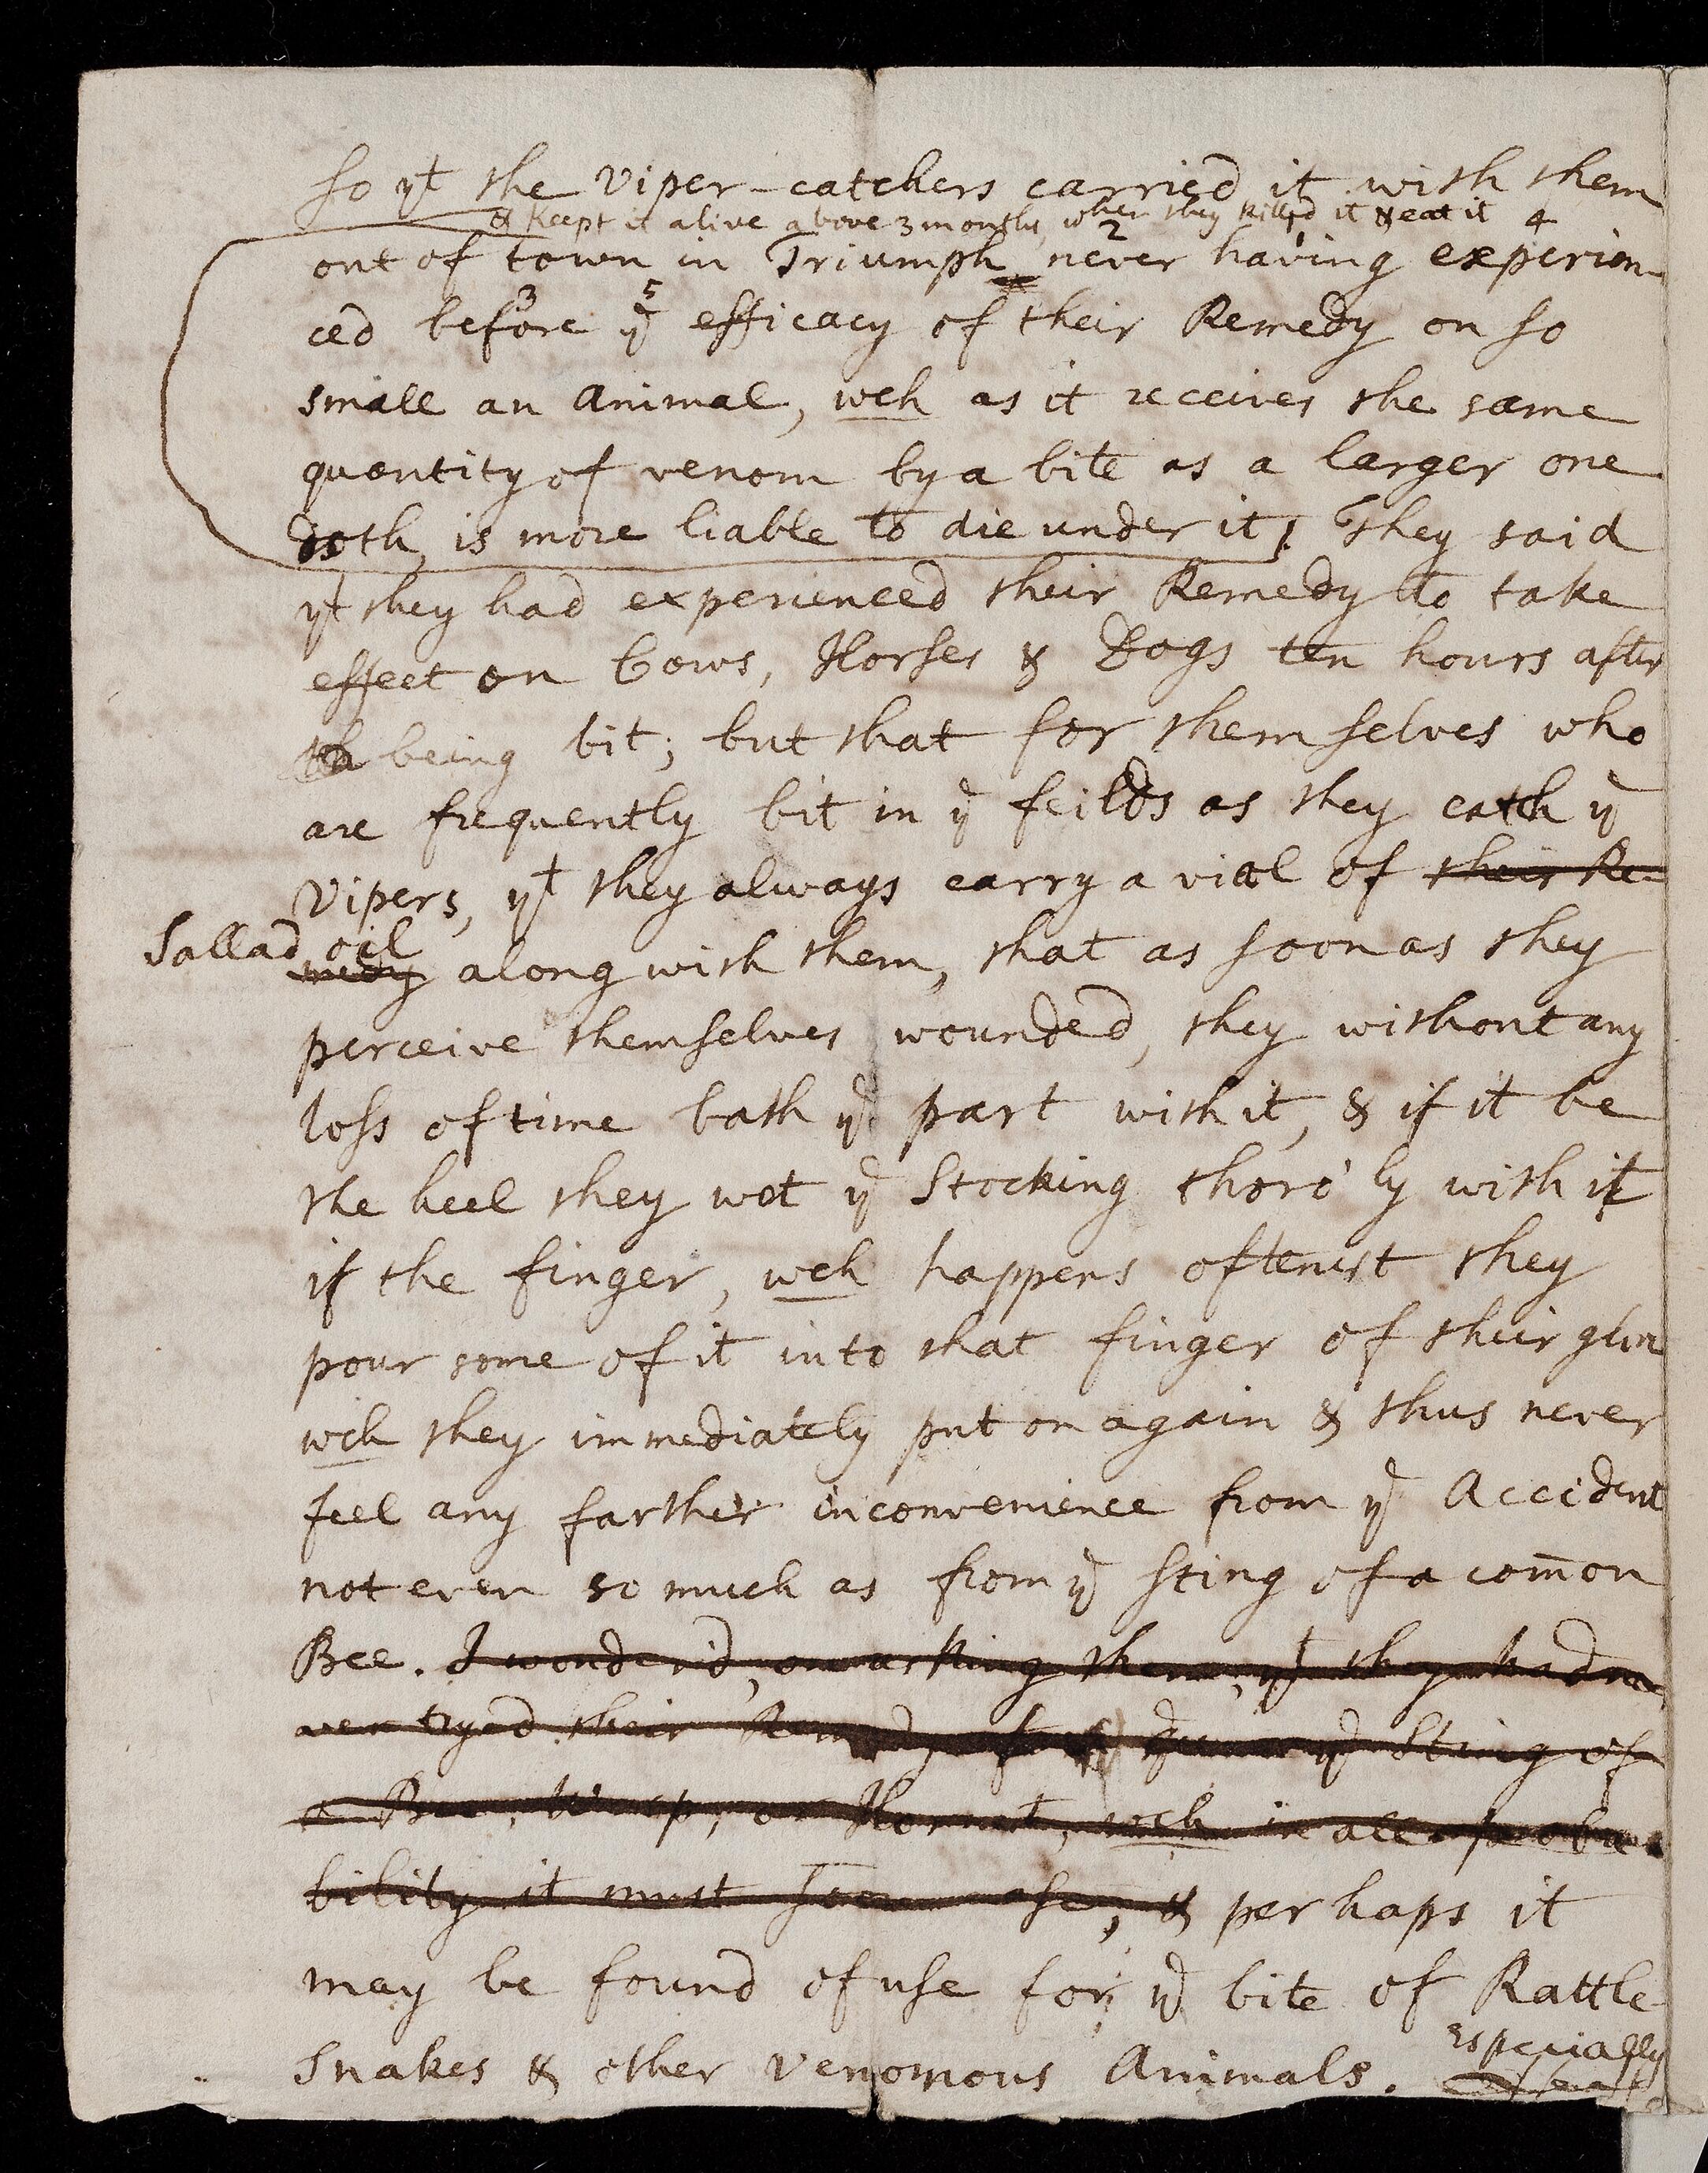 so yt the Viper-catchers carried it with them
& keept it alive above 3 months, when they killed it & eat it
2 1 4
out of town in Triumph never having experien-
3 5
ced before ye efficacy of their Remedy on so
small an Animal, wch as it receives the same
quantity of venom by a bite as a larger one
doth, is more liable to die under it. They said
yt they had experienced their Remedy to take
effect on Cows, Horses & Dogs ten hours after
being bit; but that for themselves who
are frequently bit in ye feilds as they catch ye
Vipers, yt they always carry a vial of their Re-
Sallad oil
medy along with them, that as soon as they
perceive themselves wounded, they without any
loss of time bath ye part with it, & if it be
the heel they wet ye Stocking thoro'ly with it
if the finger, wch happens oftenest they
pour some of it into that finger of their glove
wch they immediately put on again & thus never
feel any farther inconvenience from ye Accident
not even so much as from ye sting of a com̄on
Bee. I wonder'd, on asking them, yt they had ne-
ver tryed their Remedy ye Sting of
a Bee, Wasp, or Hornet, wch in all proba-
bility it must &  perhaps it
may be found of use for ye bite of Rattle
Snakes & other Venomous Animals. especially